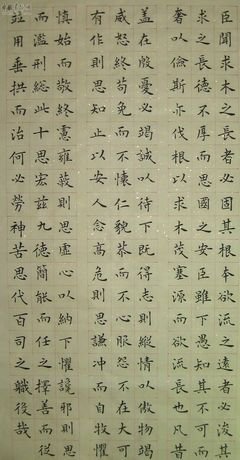 臣聞求木之長者必固其根本欲流之遠者必浚其
求之長德不厚而思國之安臣雖下愚知其不可
奢以儉斯亦伐根以求木茂塞源而欲流長也凡昔
蓋在殷憂必竭誠以待下既得志則縱情以傲物竭
威怒終苟免而不懷仁貌恭而不心服怨不在大可
有作則思知止以安人念高危則思謙冲而自牧懼
慎始而敬終憲雍蔽則思虛心以納下懼讒邪則思
而濫刑總此十思宏兹九德簡能而任之擇善而從
並用垂拱而治何必勞神苦思代百司之職役哉